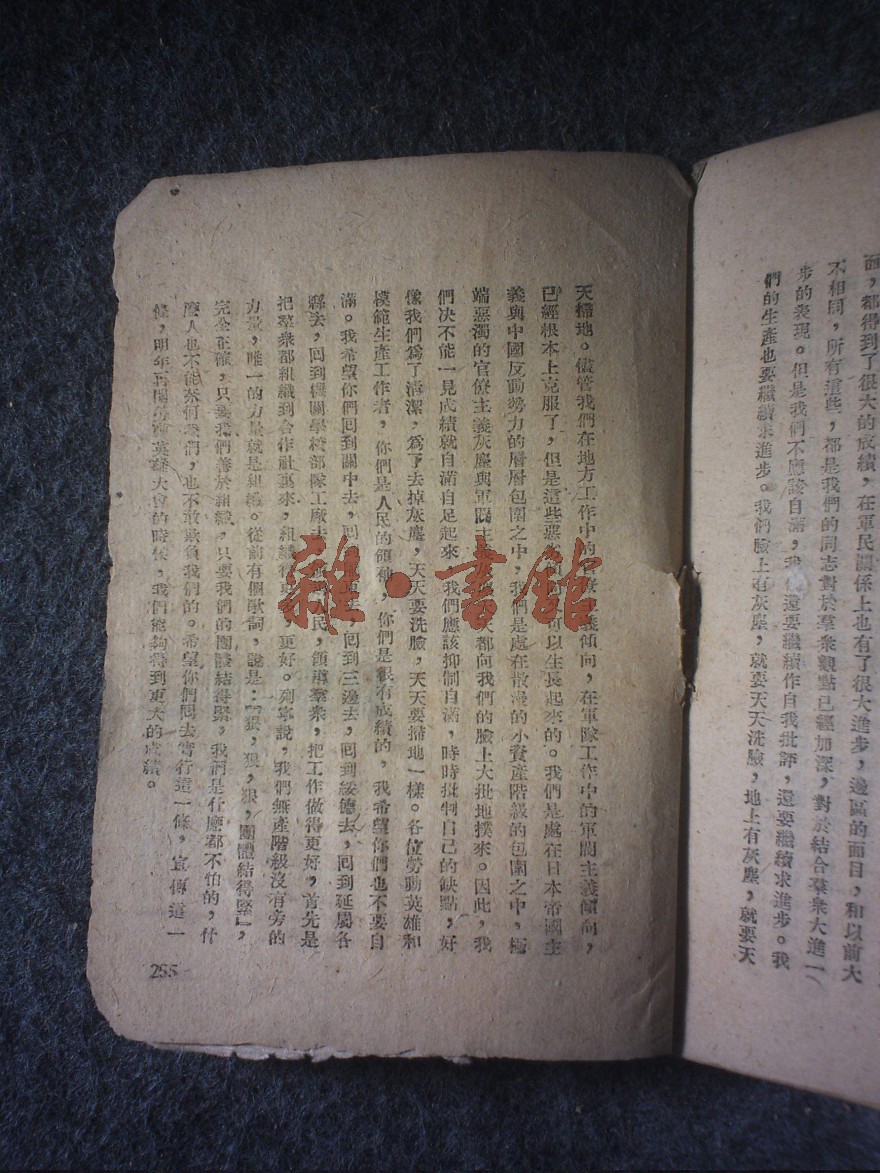 面，都得到了很大的成績，在軍民關係上也有了很大進步，邊區的面目，和以前大
不相同，所有這些，都是我們的同志對於羣衆觀點已經加深，對於結合羣衆大進一
步的表現。但是我們不應該自滿，我們還要繼續作自我批評，還要繼續求進步。我
們的生產也要繼續求進步。我們臉上有灰塵，就要天天洗臉，地上有灰塵，就要天
天掃地。儘管我們在地方工作中的官僚主義傾向，在軍隊工作中的軍閥主義傾向，
已經根本上克服了，但是這些惡 可以生長起來的。我們是處在日本帝國主
義與中國反動勢力的層層包圍之中，我們是處在散漫的小資產階級的包圍之中，極
端惡濁的官僚主義灰塵與軍閥主 天都向我們的臉上大批地撲來。因此，我
們决不能一見成績就自滿自足起來。我們應該抑制自滿，時時批制自己的缺點，好
像我們爲了清潔，爲了去掉灰塵，天天要洗臉，天天要掃地一樣。各位勞動英雄和
模範生產工作者，你們是人民的領袖，你們是很有成績的，我希望你們也不要自
滿。我希望你們回到關中去，回 去，回到三邊去，回到綏德去，回到延屬各
縣去，回到機關學校部隊工廠去， 民，領導羣衆，把工作做得更好，首先是
把羣衆都組織到合作社裏來，組織得更 ，更好。列寧說，我們無產階級沒有旁的
力量，唯一的力量就是組織。從前有個歌詞，說是：「狠，狠，狠，團體結得緊」，
完全正確，只要我們善於組織，只要我們的團體結得緊，我們是什麽都不怕的，什
麽人也不能奈何我們，也不敢欺負我們的。希望你們回去實行這一條，宣傳這一
條，明年再開勞動英雄大會的時候，我們能夠得到更大的成績。
255
雜·書館